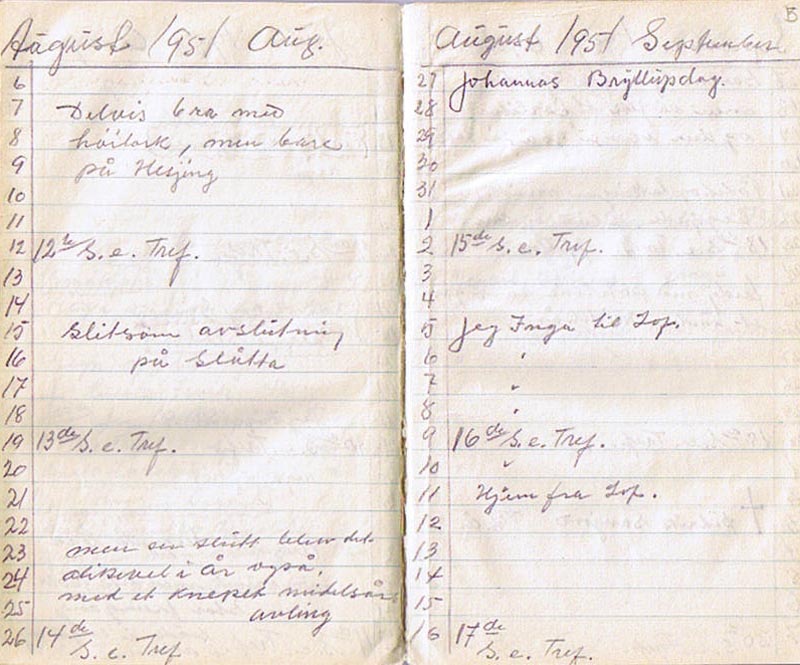 August 1951 Aug.
6
7 Delvis bra med
8 höitørk, men bare
9 på Hesjing
10
11
12 12te S. e. Tref.
13
14
15 Slitsom avslutning
16 på Slåtta
17
18
19 13de S. e. Tref.
20
21
22
23 men en slutt blev det
24 alikevel i år også,
25 med et knepet midelsårs
avling
26 14de S. e. Tref
B
August 1951 September
27 Johannas Bryllupdag.
28
29
30
31
1
2 15de S. e. Tref.
3
4
5 Jeg Inga til Sop.
6 "
7 "
8 "
9 16de S. e. Tref.
10 "
11 Hjem fra Sop.
12
13
14
15
16 17de S. e. Tref.